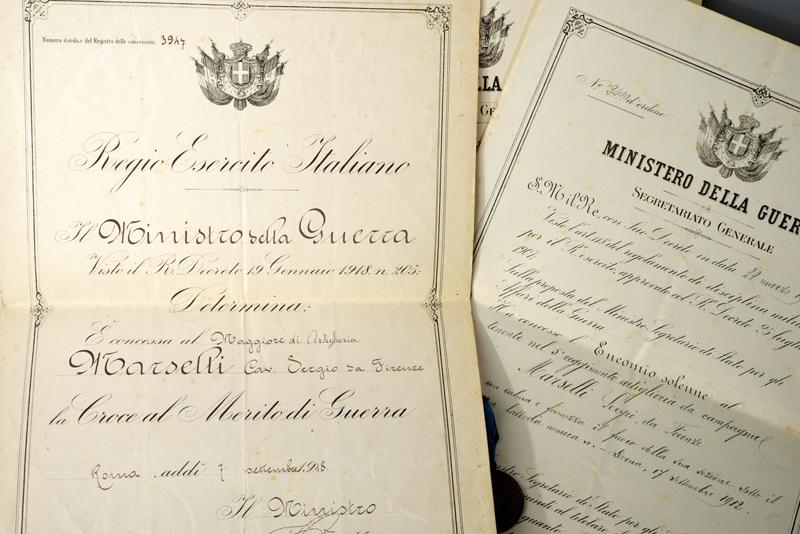 Numero d'ordine del Registro delle concessioni 3947
Regio Esercito Italiano
Il Ministro della Guerra
Visto il R. Decreto 19 Gennaio 1918, n. 205;
Determina:
È concessa al Maggiore di Artiglieria
Marselli Cav. Sergio da Firenze
la Croce al Merito di Guerra
Roma addì 7 settembre 1918
Il Ministro
LLA
GE
N.° d'ordine
MINISTERO DELLA GUER
SEGRETARIATO GENERALE
S. M. il Re, con Suo Decreto in data marzo
Visto l'art. del regolamento di disciplina milit
per il R. esercito, approvato col R. Decreto 25 lugli
1907.
Sulla proposta del Ministro Segretario di Stato per gli
Affari della Guerra
Ha concesso l' Encomio solenne al
tenente nel 5° reggimento artiglieria da campagna
Marselli Sergio, da Firenze
con calma e fermezza il fuoco della sua sezione sotto il
17 settembre 1912.
Segretario di Stato per gli
quindi al titolare